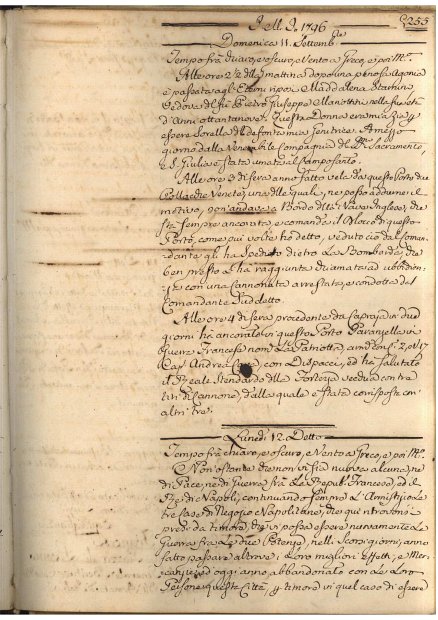 J. M. J. 1796
255
Domenica 11. Settemb.re
Tempo frà chiaro, e oscuro, e Vento a Greco, e poi M.o
Alle ore 2 1/2 della mattina dopo una penosa Agonia
è passata agl'Eterni riposi Maddalena
Vedova del fù Pietro Giuseppe nella sua età
d'Anni ottantanove. Questa Donna era mia Zia p
essere sorella del defonto mio Genitore. A mezzo
giorno dalla Venerabile Compagnia del SS. Sacramento,
e S. Giulia è stata umata al Camposanto.
Alle ore 2 di sera anno fatto vela da questo Porto due
Pollacche Venete, una delle quali, ne posso addurne il
motivo, non andava a Bordo della Nave Inglese, che
stà sempre ancorata, e comanda il Bloco di questo
Porto, come più volte hò detto, veduto ciò dal Coman-
dante gli hà spedito dietro la Bombarda, che
ben presto l'hà raggiunta chiamata ad ubbidien-
za con una Cannonata arrestata, e condotta dal
Comandante sudetto.
Alle ore 4 di sera procedente da Capraja in due
giorni hà ancorato in questo Porto Paranzella di
Guerra Francese nom.a La Patriotta, arm. 2, ed 17
Cap. Andrea con Dispacci, ed hà salutato
il Reale Stendardo della Fortezza vecchia con tre
tiri di Cannone, dalla quale è stata corrisposta con
altri tre.
Lunedì 12. Detto
Tempo frà chiaro, e oscuro, e Vento a Greco, e poi M.o
Non ostante che non vi sia nuova alcuna, ne
di Pace, ne di Guerra frà la Repub. Francese, ed il
Rè di Napoli, continuando sempre l'Armistizio le
tre Case di Negozio Napolitane, che qui si trovono
presi da timore, che vi possa essere nuovamente la
Guerra frà le due Potenze, nelli scorsi giorni, anno
fatto passare altrove i loro migliori effetti, e Mer-
canzie, ed oggi anno abbandonato con le loro
Persone questa Città, p timore in quel caso di essere